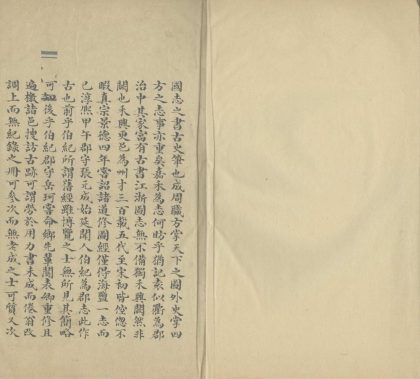 國志之書古史筆也成周職方掌天下之圖外史掌四
方之志事亦重矣嘉禾為志何昉乎猶記袁似衢為郡
治中其家富有古書江浙圖志無不備獨禾興闕然非
闕也禾興更邑為州才三百載五代至宋初皆倥偬不
暇真宗景德四年嘗詔諸道修圖經僅得海鹽一志而
已淳熙甲午郡守張元成始延聞人伯紀為郡志此作
古也前乎伯紀所謂舊經雖博覽之士無所見其簡略
可知後乎伯紀郡守岳珂嘗命鄉先輩關表卿重修且
遍檄諸邑搜訪古跡可謂勞於用力書未成而倦翁改
調上而無紀錄之冊可參次而無老成之士可質又次